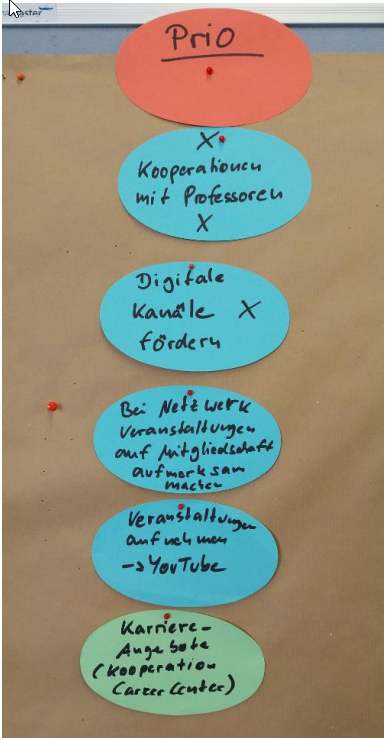 Prio
X
Kooperationen
mit Professoren
X
Digitale
Kanäle X
fördern
Bei Netzwerk
Veranstaltungen
auf Mitgliedschaft
aufmerksam
machen
Veranstaltungen
aufnehmen
→ YouTube
Karriere-
Angebote
(Kooperation
Career Center)